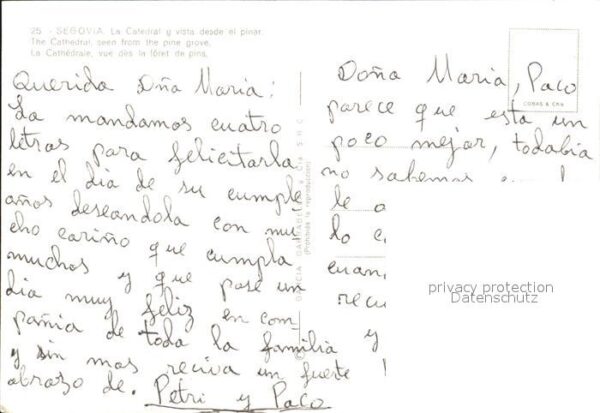 25 - SEGOVIA. La Catedral y vista desde el pinar.
The Cathedral, seen from the pine grove.
La Cathédrale, vue dès la fôret de pins.
Querida Dña Maria:
La mandamos cuatro
letras para felicitarla
en el dia de su cumple
años deseandola con mu
cho cariño que cumpla
muchos y que pase un
dia muy feliz en com-
pañia de toda la familia
y sin mas reciva un fuerte
abrazo de. Petri y Paco
(Prohibida la reproducción)
COBAS & CHA
Doña Maria, Paco
parece que esta un
poco mejor, todabia
no sabemos
le
lo
cuan
recu
y
privacy protection
Datenschutz